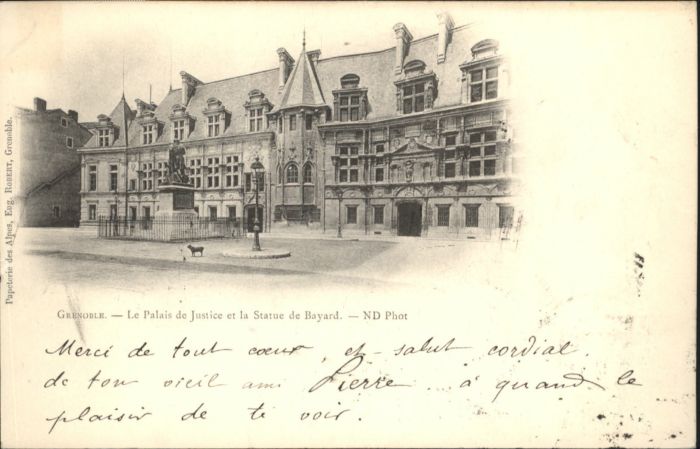 Papeterie des Alpes, Eug. ROBERT, Grenoble.
GRENOBLE. — Le Palais de Justice et la Statue de Bayard. — ND Phot
Merci de tout cœur, et salut cordial
de ton vieil ami Pierre.. à quand le
plaisir de te voir.